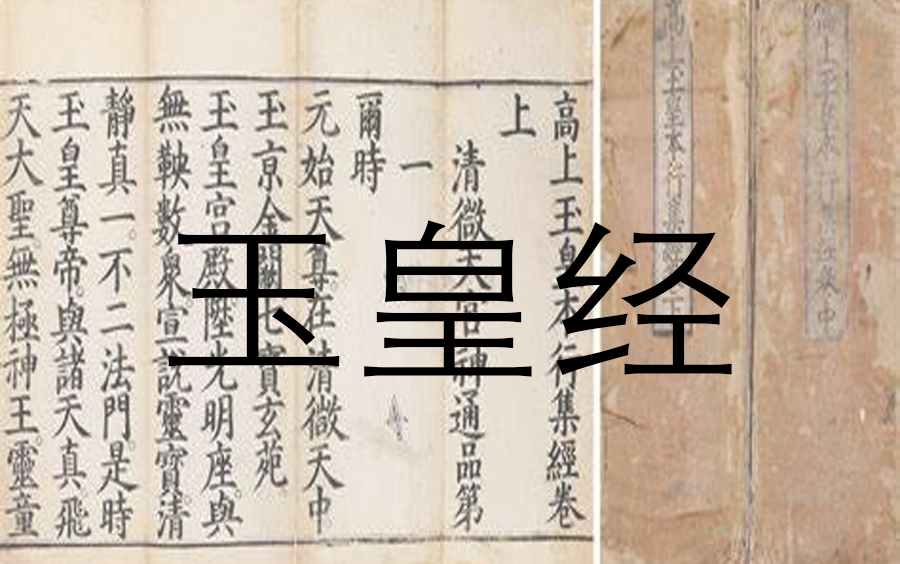 玉皇经
高上玉皇本行集經卷
上
清微天宮神通品第
一
爾時
元始天尊在清微天中
玉京金闕七寶玄苑
玉皇宮殿陞光明座與
無鞅數衆。宣說靈寶清
靜真一。不二法門。是時
玉皇尊帝。與諸天真。飛
天大聖。無極神王。靈童
高上玉皇本行集經卷中
高上玉皇本行集經卷下